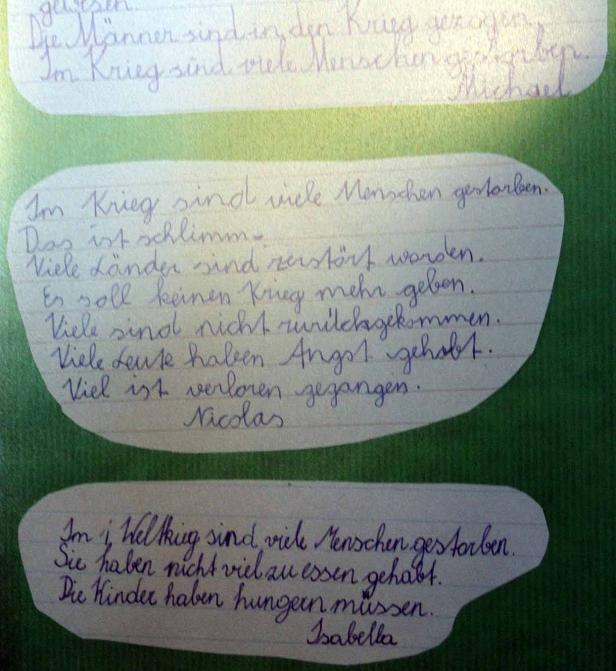 gewesen.
Die Männer sind in den Krieg gezogen.
Im Krieg sind viele Menschen gestorben.
Michael
Im Krieg sind viele Menschen gestorben.
Das ist schlimm.
Viele Länder sind zerstört worden.
Es soll keinen Krieg mehr geben.
Viele sind nicht zurückgekommen.
Viele Leute haben Angst gehabt.
Viel ist verloren gegangen.
Nicolas
Im 1, Weltkrig sind viele Menschen gestorben.
Sie haben nicht viel zu essen gehabt.
Die Kinder haben hungern müssen.
Isabella